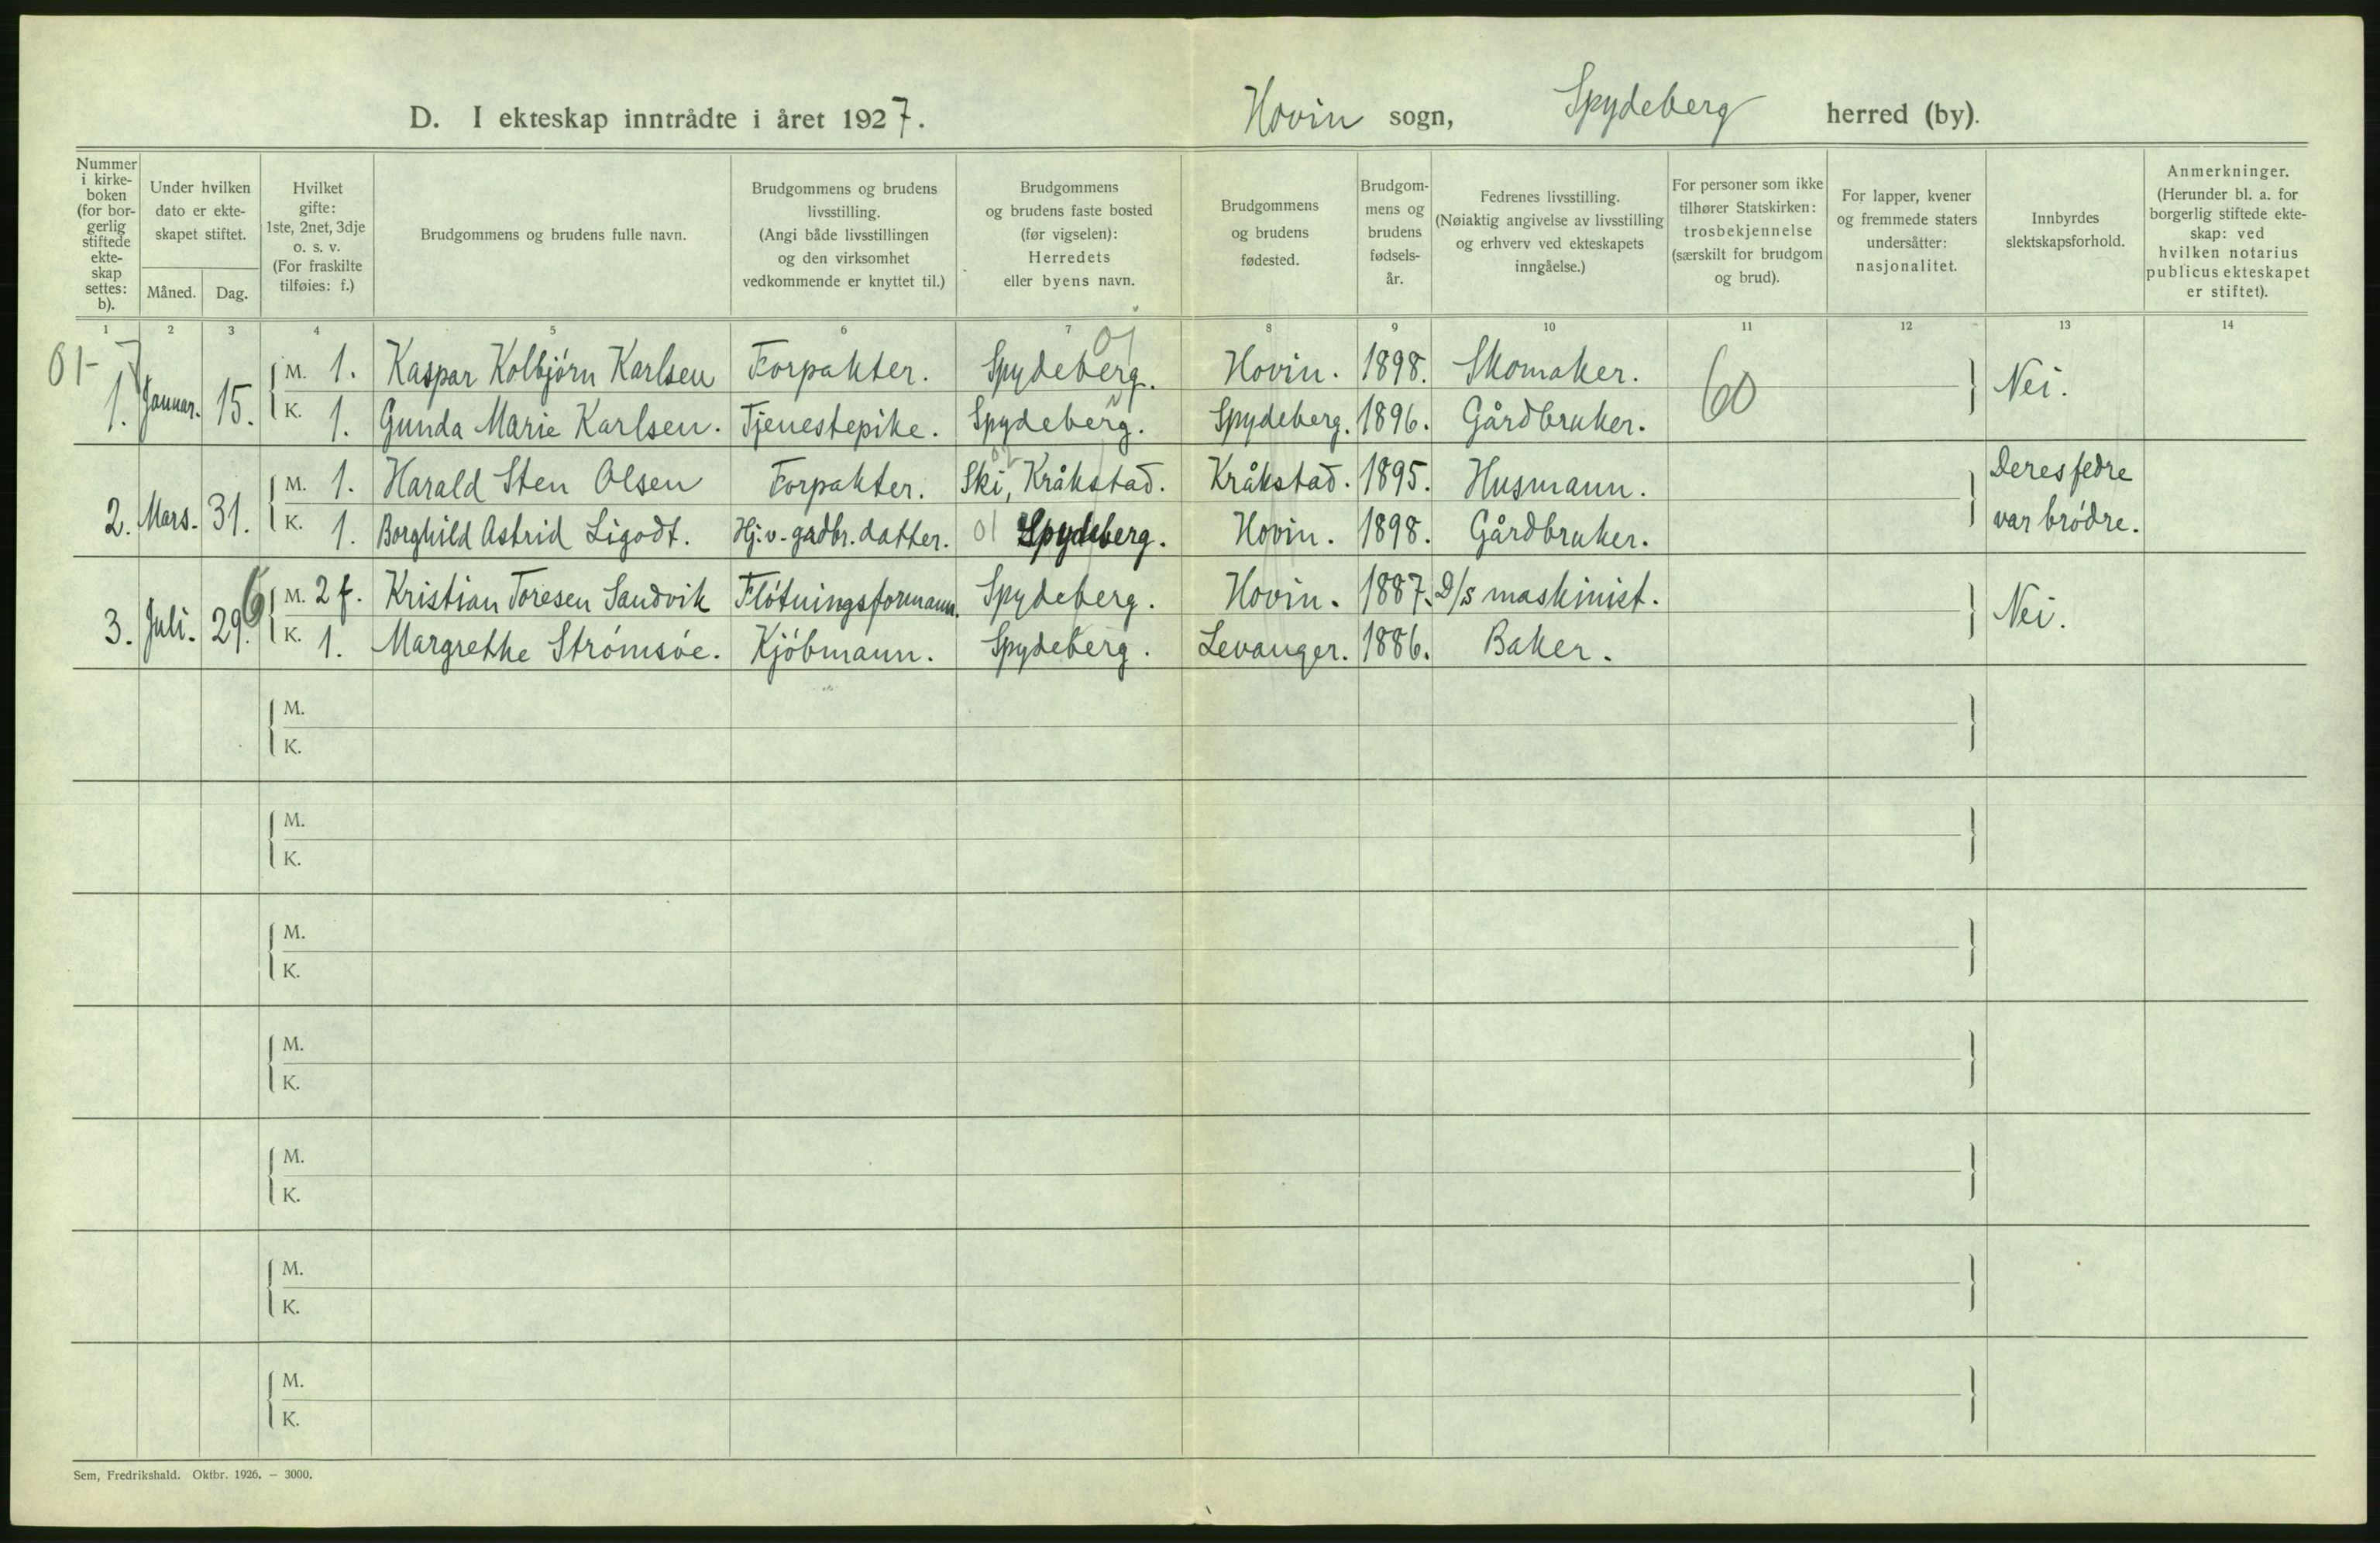 D. I ekteskap inntrådte i året 1927. Hovin sogn, Spydeberg herred (by).
Nummer i kirke-boken (for bor-gerlig stiftede ekte-skap settes: b).
Under hvilken dato er ekte-skapet stiftet.
Måned. Dag.
Hvilket gifte: 1ste, 2net, 3dje o. s. v. (For fraskilte tilføies: f.)
Brudgommens og brudens fulle navn.
Brudgommens og brudens livsstilling. (Angi både livsstillingen og den virksomhet vedkommende er knyttet til.)
Brudgommens og brudens faste bosted (før vigselen): Herredets eller byens navn.
Brudgommens og brudens fødested.
Brudgom-mens og brudens fødsels-år.
Fedrenes livsstilling. (Nøiaktig angivelse av livsstilling og erhverv ved ekteskapets inngåelse.)
For personer som ikke tilhører Statskirken: trosbekjennelse (særskilt for brudgom og brud).
For lapper, kvener og fremmede staters undersåtter: nasjonalitet.
Innbyrdes slektskapsforhold.
Anmerkninger. (Herunder bl. a. for borgerlig stiftede ekte-skap: ved hvilken notarius publicus ekteskapet er stiftet).
1 2 3 4 5 6 7 8 9 10 11 12 13 14
01- 7 01
1. Januar. 15. M. 1. Kaspar Kolbjörn Karlsen Forpakter. Spydeberg. Hovin. 1898. Skomaker. 60 Nei.
K. 1. Gunda Marie Karlsen. Tjenestepike. Spydeberg. Spydeberg. 1896. Gårdbruker.
2. Mars. 31. M. 1. Harald Sten Olsen Forpakter. Ski, Kråkstad. Kråkstad. 1895. Husmann. Deres fedre
K. 1. Borghild Astrid Ligodt. Hj.v. gadbr. datter. 01 Spydeberg. Hovin. 1898. Gårdbruker. var brödre.
3. Juli. 29. 6 M. 2 f. Kristian Toresen Sandvik Flötningsformann. Spydeberg. Hovin. 1887. D/s maskinist. Nei.
K. 1. Margrethe Strömsöe. Kjöbmann. Spydeberg. Levanger. 1886. Baker.
M.
K.
M.
K.
M.
K.
M.
K.
M.
K.
M.
K.
M.
K.
Sem, Fredrikshald. Oktbr. 1926. – 3000.